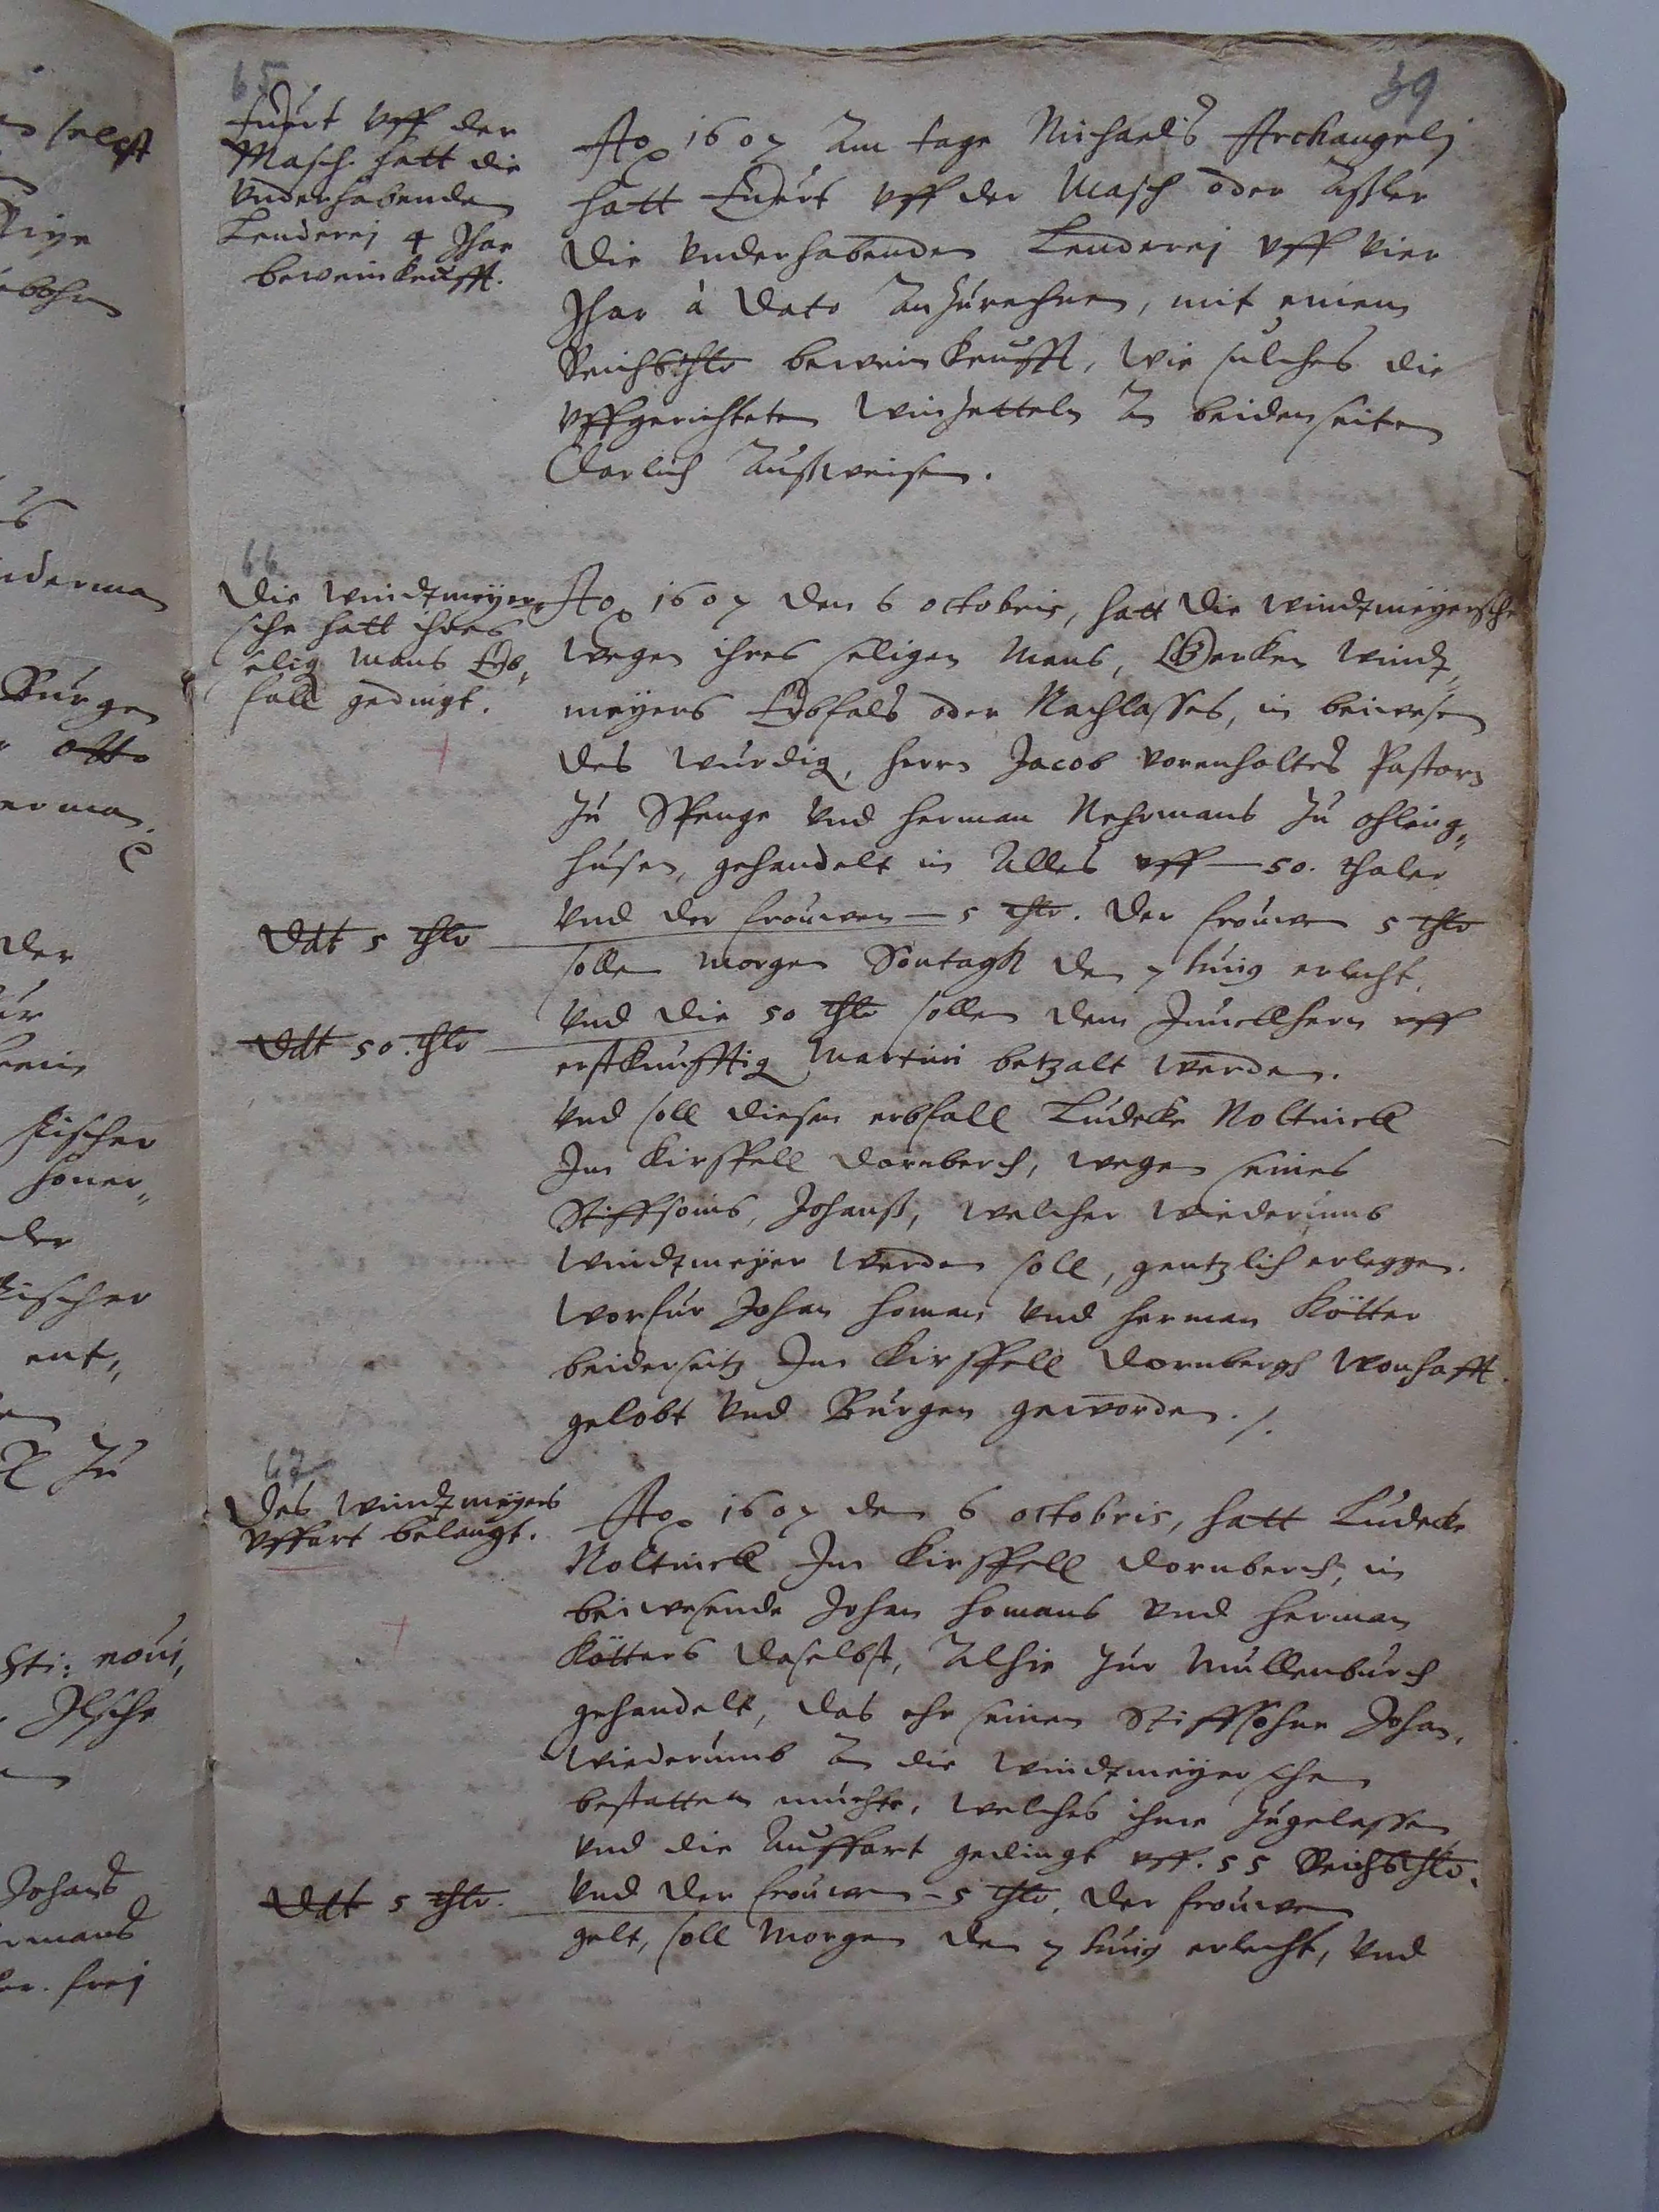 39
65
Evert vff der
Masch. hatt die
vnderhabende
Lenderej 4 Jhar
beweinkeufft.
Ao 1607 Am tage Michaelis Archangelj
hatt Evert vff der Masch oder Aßler
die vnderhabenden Lenderej vff vier
Jhar à dato anzurechnen, mit einem
Reichßthlr beweinkeufft, wie sulches die
vffgerichteten winzetteln An beidenseiten
Clarlich Außweisen.
66
Die windtmeyer-
sche hatt ihres
selig Mans Erb-
fall gedingt.
Ao 1607 den 6 octobris, hatt die windtmeyersche
wegen ihres seligen Mans, Gerken windt-
meyers Erbfals oder Nachlasses, in beiwesen
des würdig. herrn Jacob vorenholtes Pastorn
zu Spenge vnd herman Nehrmans zu ohling-
husen, gehandelt in Alles vff — 50. thaler
vnd der frouwen — 5 thlr. Der frouwen 5 thlr
sollen morgen Sontagh den 7 huius erlecht,
vnd die 50 thlr sollen dem Junckhern vff
erstkunfftig Martini betzalt werden.
vnd soll diesen erbfall Ludecke Noltnick
Im Kirspell dornberch, wegen seines
Stiffsoins, Johanß, welcher wiederumb
windtmeyer werden soll, gentzlich erleggen.
worfur Johan homan vnd herman Kötter
beiderseitz Im Kirspell dornbergh wonhafft
gelobt vnd Burgen geworden ./.
Ddt 5 thlr
Ddt 50. thlr
67
Des windtmeyers
vffart belangt.
Ao 1607 den 6 octobris, hatt Ludecke
Noltnick Im Kirspell dornberch, in
beiwesende Johan homans vnd herman
Kötters daselbst, Alhie zur Mullenburch
gehandelt, das ehr seinen Stiffsohne Johan,
wiederumb An die windtmeyerschen
bestatten muchte, welches ihme zugelassen
vnd die Auffart gedingt vff. 55 Reichßthlr.
vnd der frouwen — 5 thlr. der frouwen
gelt, soll Morgen den 7 huius erlecht, vnd
Ddt 5 thlr.